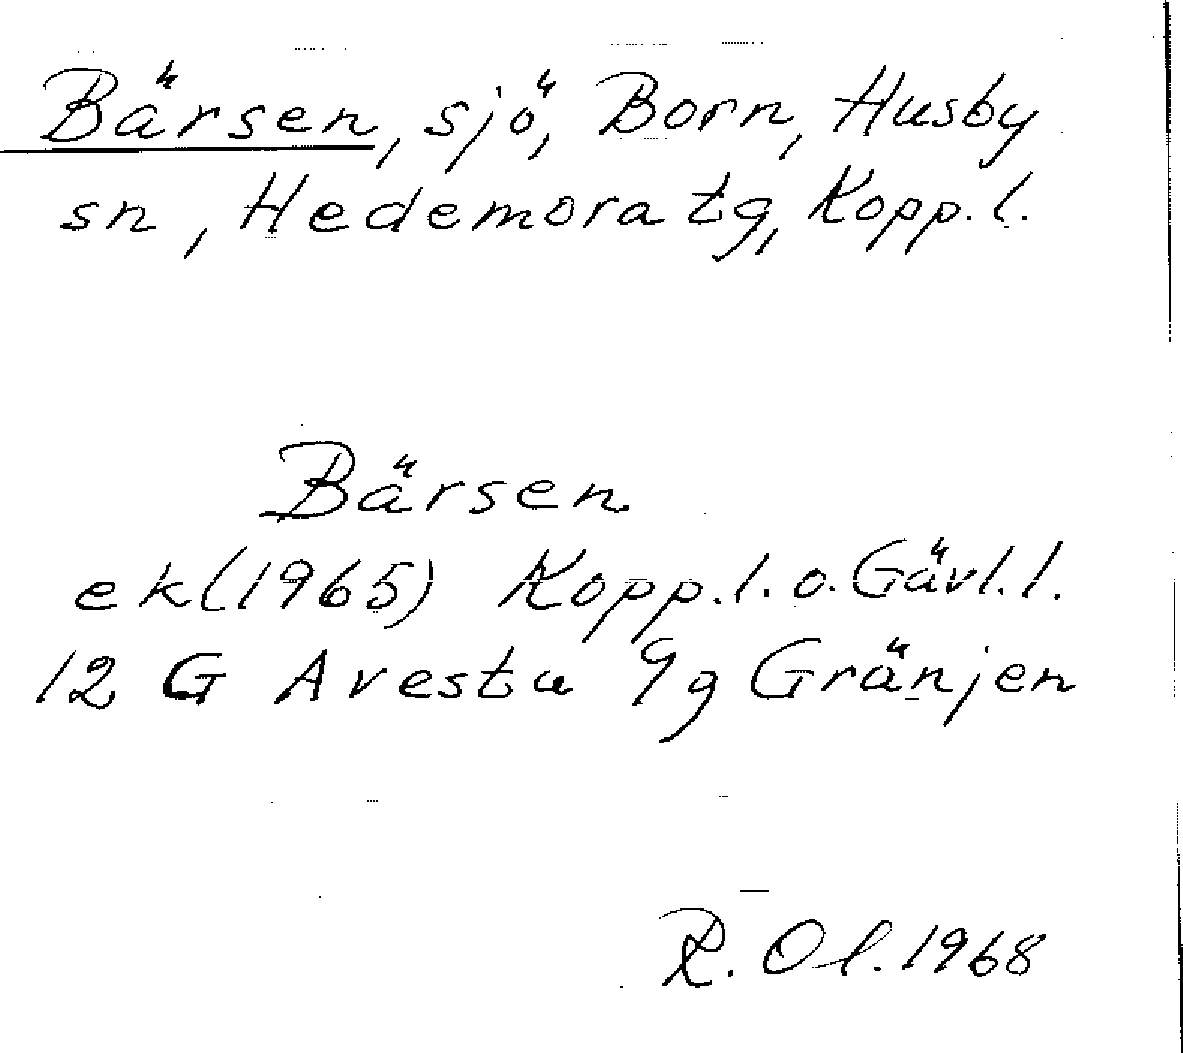 Bärsen, sjö, Born, Husby
sn, Hedemora tg, Kopp. l.
Bärsen
ek (1965) Kopp. l. o. Gävl. l.
12 G Avesta 9g Gränjen
R. Ol. 1968